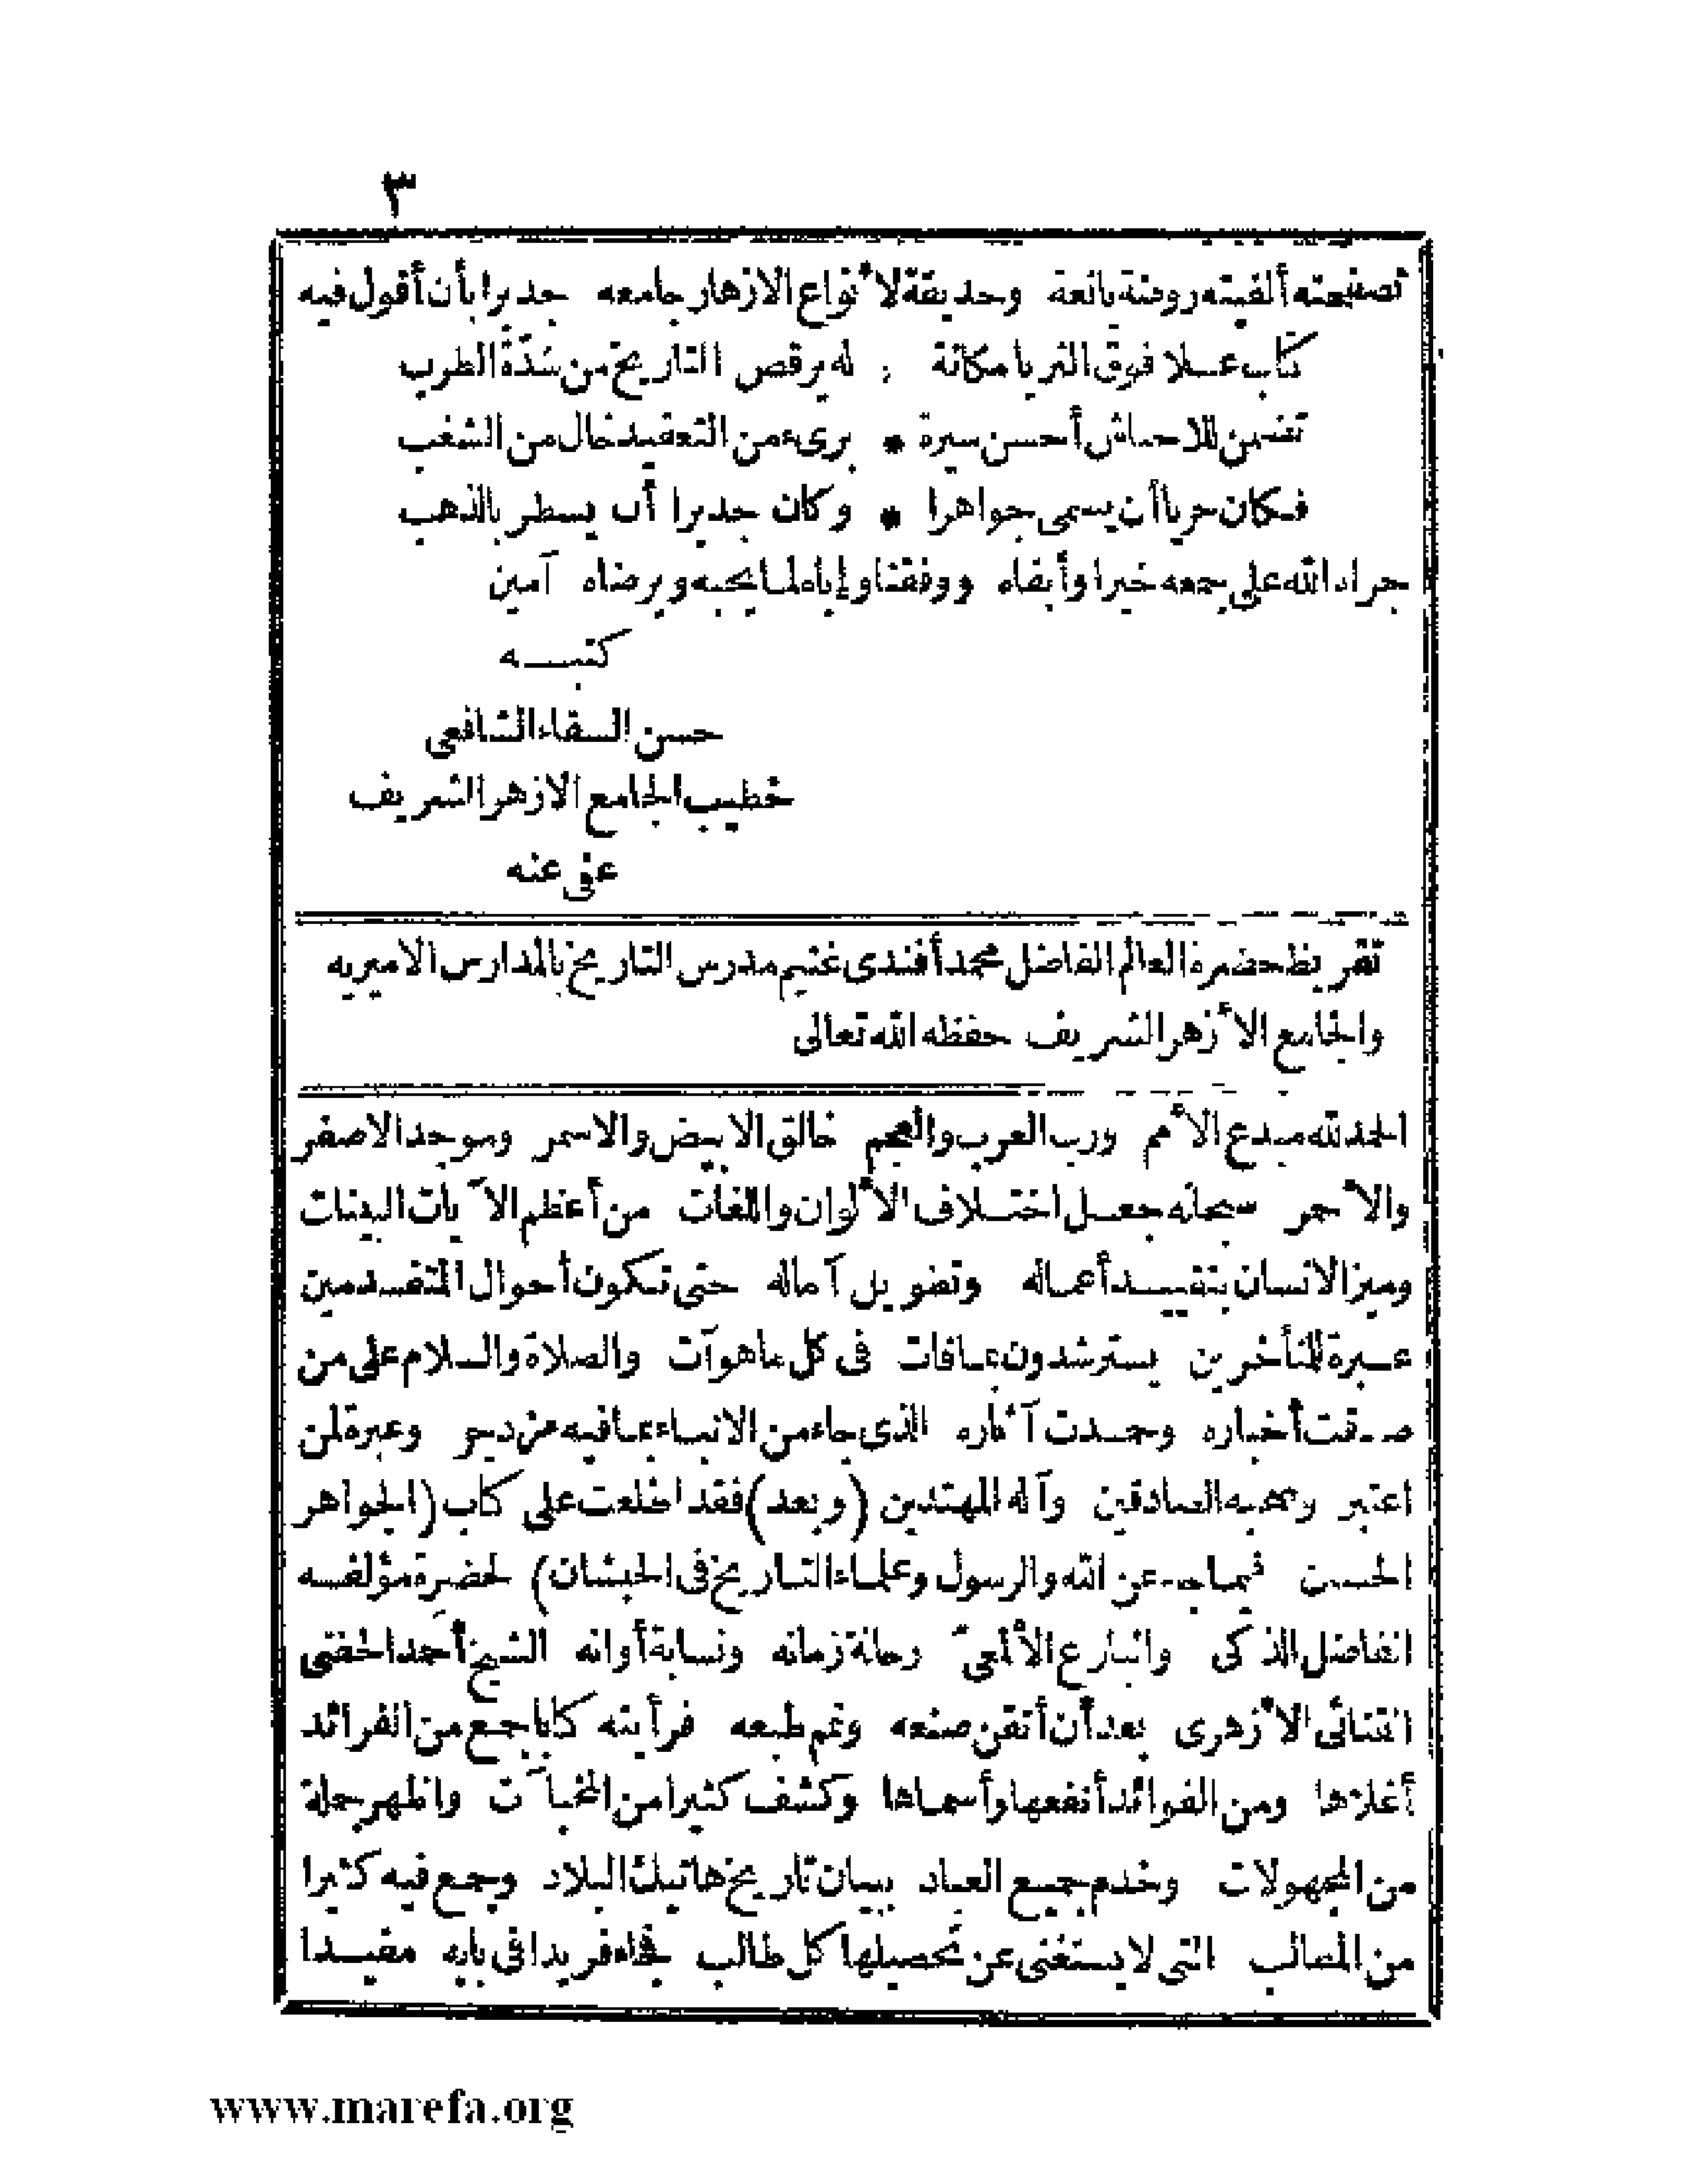 ٣
تصفحته ألفيته روضة يانعة وحديقة لأنواع الازهار جامعه جديرا بأن أقول فيه
كتاب علا فوق الثريا مكانة * له يرقص التاريخ من شدّة الطرب
تضمن للاحباش أحسن سيرة * برىء من التعقيد خال من الشغب
فكان حريا أن يسمى جواهرا * وكان جديرا أن يسطر بالذهب
جزاه الله على جمعه خيرا وأبقاه ووفقنا وإياه لما يحبه ويرضاه آمين
كتبه
حسن السقاء الشافعى
خطيب الجامع الازهر الشريف
عفى عنه
تقريظ حضرة العالم الفاضل محمد أفندى غنيم مدرس التاريخ بالمدارس الاميريه
والجامع الأزهر الشريف حفظه الله تعالى
الحمد لله مبدع الأمم ورب العرب والعجم خالق الابيض والاسمر وموجد الاصفر
والأحمر سبحانه جعل اختلاف الألوان واللغات من أعظم الآيات البينات
وميز الانسان بتقييد أعماله وتطويل آماله حتى تكون أحوال المتقدمين
عبرة للمتأخرين يسترشدون بما فات فى كل ما هو آت والصلاة والسلام على من
صدقت أخباره وحمدت آثاره الذى جاء من الانباء بما فيه مزدجر وعبرة لمن
اعتبر وصحبه الصادقين وآله المهتدين (وبعد) فقد اطلعت على كتاب (الجواهر
الحسان فيما جاء عن الله والرسول وعلماء التاريخ فى الحبشان) لحضرة مؤلفه
الفاضل الذكى والبارع الألمعىّ رحالة زمانه ونسابة أوانه الشيخ أحمد الحفنى
القنائى الأزهرى بعد أن أتقن صنعه وتم طبعه فرأيته كتابا جمع من الفرائد
أغلاها ومن الفوائد أنفعها وأسماها وكشف كثيرا من المخبآت واظهر جملة
من المجهولات وخدم جميع العباد ببيان تاريخ هاتيك البلاد وجمع فيه كثيرا
من المطالب التى لا يستغنى عن تحصيلها كل طالب فجاء فريدا فى بابه مفيدا
www.marefa.org